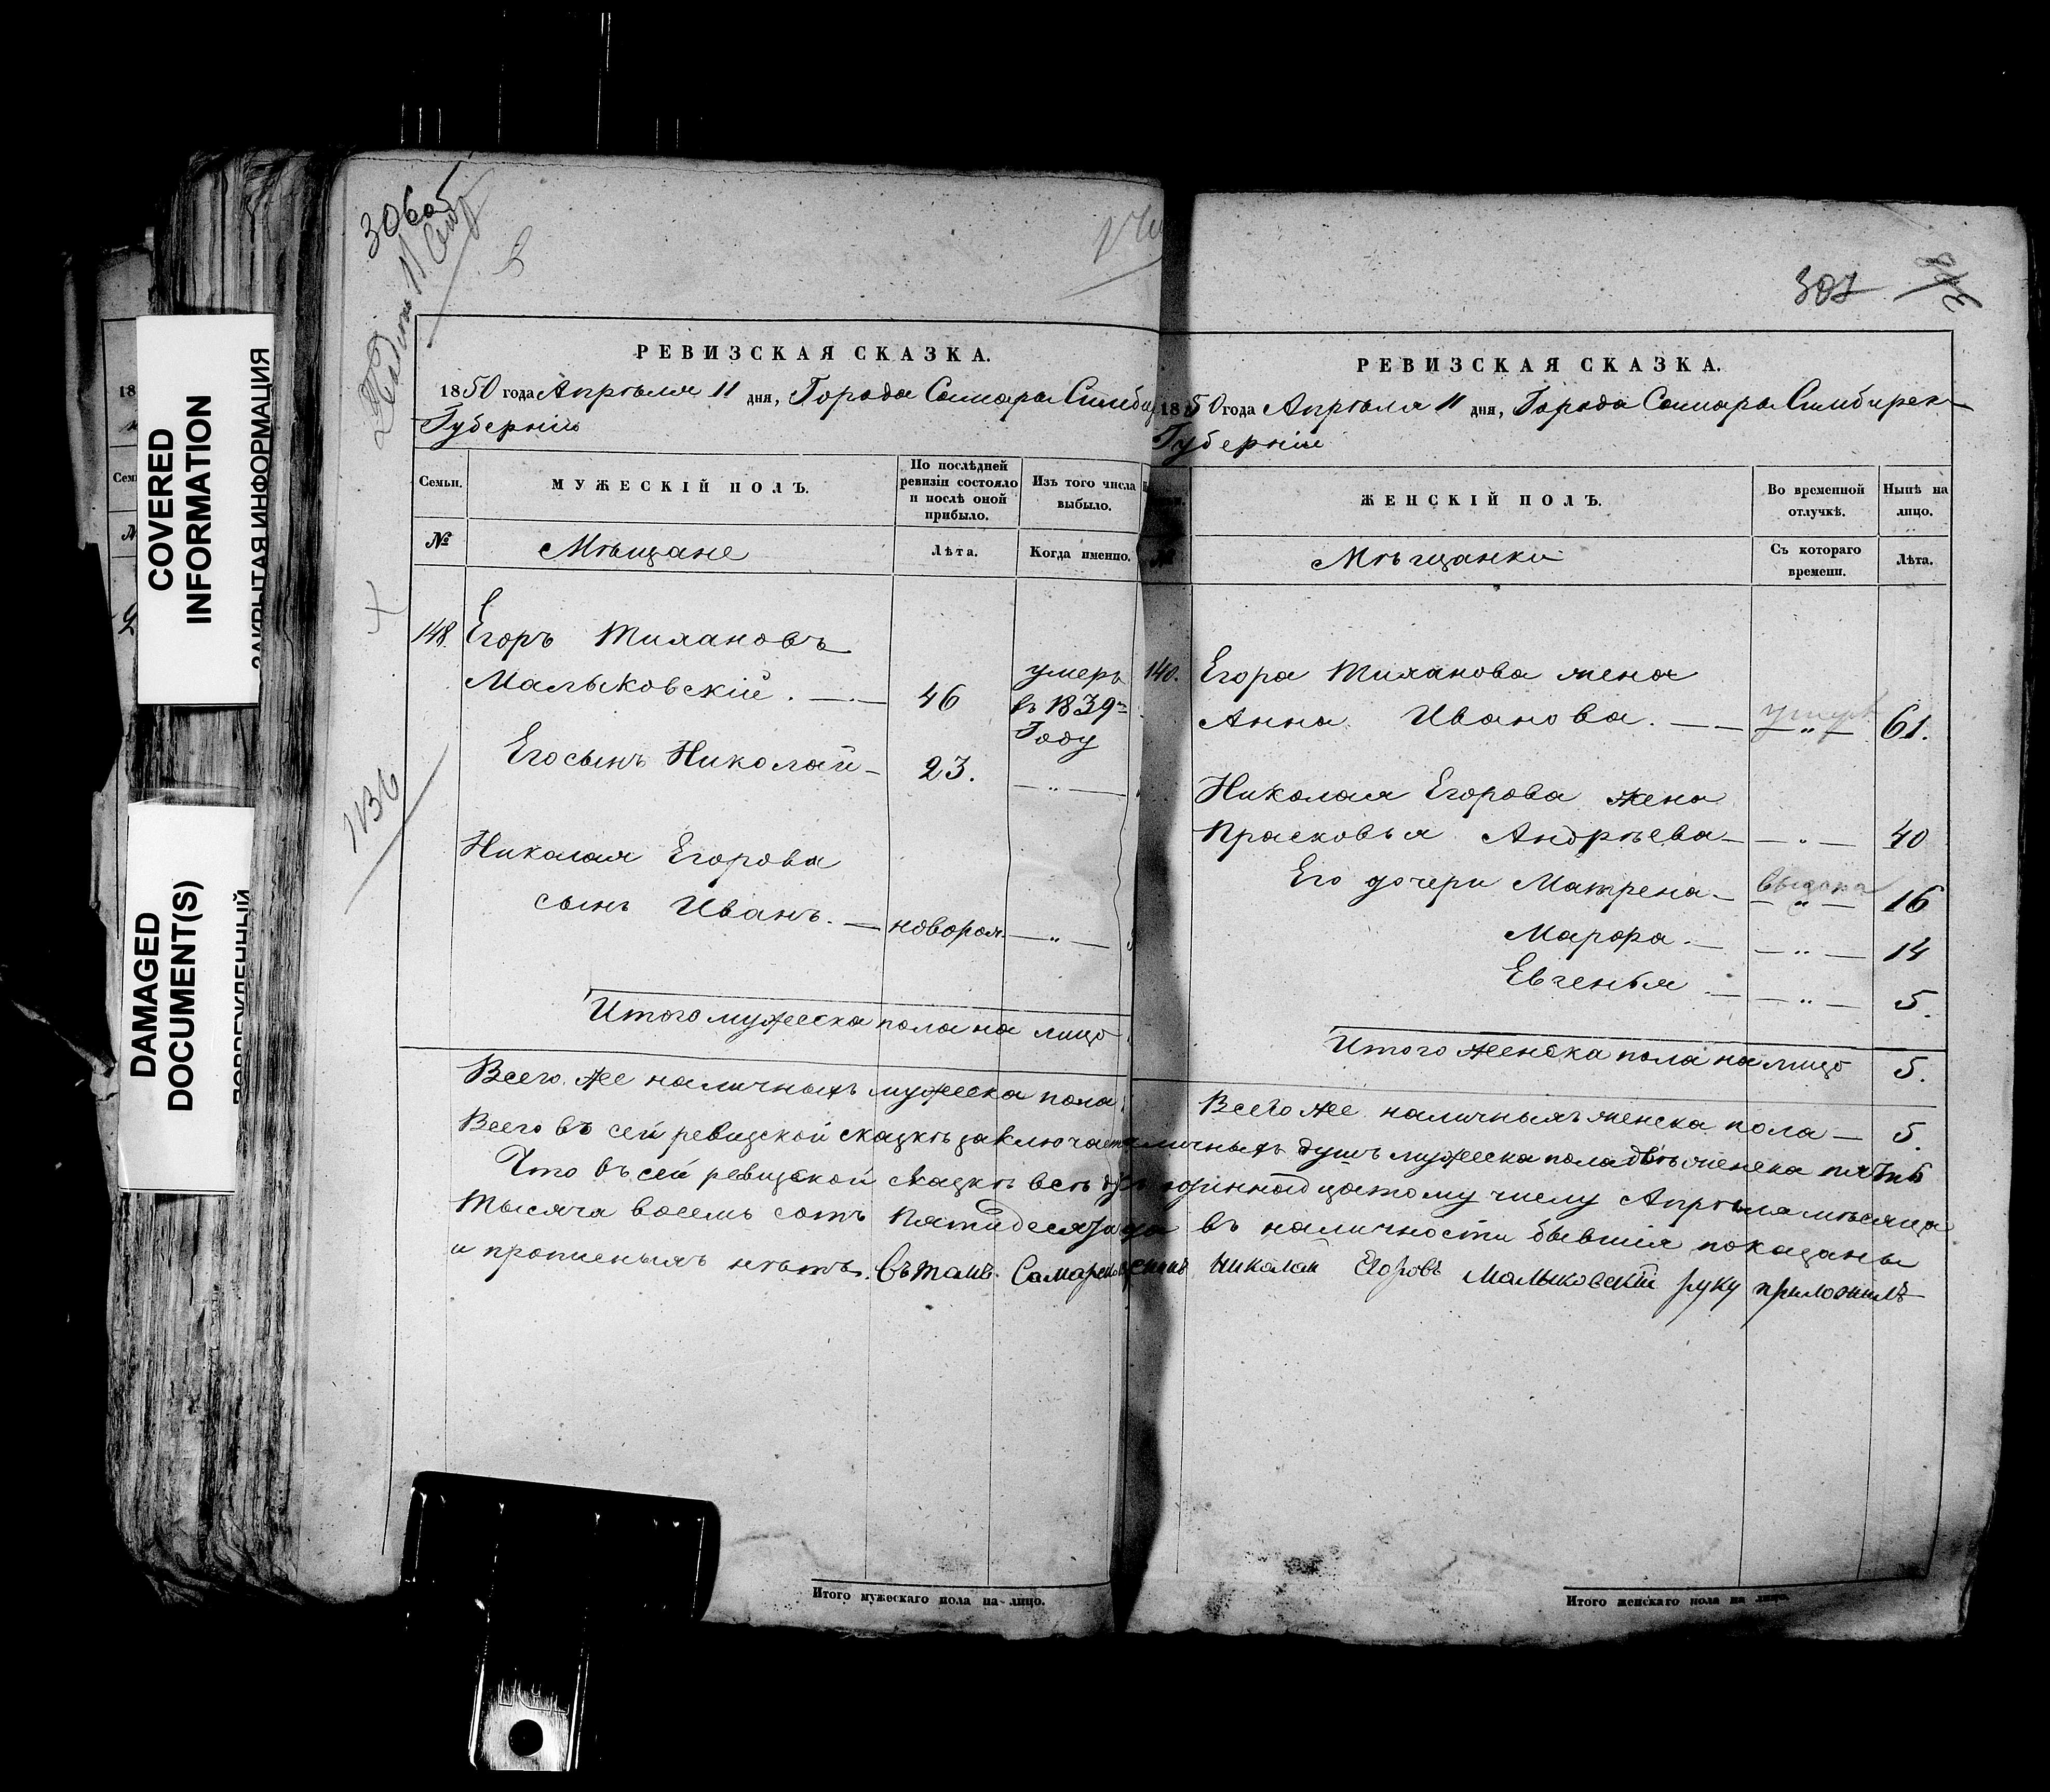 COVERED
INFORMATION
ЗАКРЫТАЯ ИНФОРМАЦИЯ
DAMAGED
DOCUMENT(S)
ПОВРЕЖДЕННЫЙ
306об
1136
РЕВИЗСКАЯ СКАЗКА.
1850 года Апрѣля 11 дня, Города Самары Симби
Губерніи
Семьи.
МУЖЕСКІЙ ПОЛЪ.
По послѣдней
ревизіи состояло
и послѣ оной
прибыло.
Изъ того числа
выбыло.
№
Мѣщане
Лѣта.
Когда именно.
148. Егоръ
Малыковскій. 46 умеръ
въ 1839м
Году
Его сынъ Николай 23. "
Николая Егорова
сынъ Иванъ. новорож. "
Итого мужеска пола на лицо
Всего же наличныхъ мужеска пола
Всего въ сей ревизской сказкѣ заключает
Что въ сей ревизской сказкѣ всѣ
тысяча восемь сотъ пятидеся
и прописныхъ нѣтъ. Въ томъ Самарск
Итого мужескаго пола на-лицо.
307
РЕВИЗСКАЯ СКАЗКА.
1850 года Апрѣля 11 дня, Города Самары Симбирск
Губерніи
ЖЕНСКІЙ ПОЛЪ.
Во временной
отлучкѣ.
Нынѣ на
лицо.
№
Мѣщанки
Съ котораго
времени.
Лѣта.
148. Егора жена
Анна Иванова. " 61.
Николая Егорова жена
Прасковья Андрѣева " 40
Его дочери Матрена выдана " 16
Марфа. " 14
Евгенья " 5.
Итого женска пола на лицо 5.
Всего же наличныхъ женска пола 5.
личныхъ душъ мужеска пола двѣ женска пять
одиннадцатому числу Апрѣля мѣсяца
въ наличности бывшія показаны
Николай Егоровъ Малыковскій руку приложилъ
Итого женскаго пола на лицо.